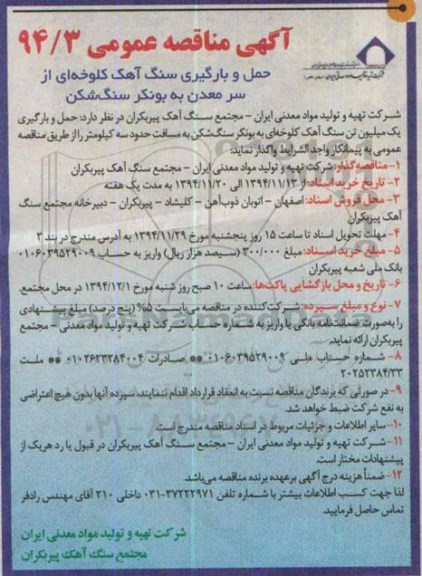 آگهی مناقصه عمومی ۹۴/۳
حمل و بارگیری سنگ آهک کلوخه‌ای از
سر معدن به بونکر سنگ‌شکن
شرکت تهیه و تولید مواد معدنی ایران - مجتمع سنگ آهک پیربکران در نظر دارد: حمل و بارگیری
یک میلیون تن سنگ آهک کلوخه‌ای به بونکر سنگ‌شکن به مسافت حدود سه کیلومتر را از طریق مناقصه
عمومی به پیمانکار واجد الشرایط واگذار نماید:
۱- مناقصه‌گذار: شرکت تهیه و تولید مواد معدنی ایران - مجتمع سنگ آهک پیربکران
۲- تاریخ خرید اسناد: از ۱۳۹۴/۱۱/۱۳ الی ۱۳۹۴/۱۱/۲۰ به مدت یک هفته
۳- محل فروش اسناد: اصفهان - اتوبان ذوب‌آهن - کلیشاد - پیربکران - دبیرخانه مجتمع سنگ
آهک پیربکران
۴- مهلت تحویل اسناد تا ساعت ۱۵ روز پنجشنبه مورخ ۱۳۹۴/۱۱/۲۹ به آدرس مندرج در بند ۳
۵- مبلغ خرید اسناد: مبلغ ۳۰۰/۰۰۰ (سیصد هزار ریال) واریز به حساب ۰۱۰۶۰۳۹۵۲۹۰۰۹
بانک ملی شعبه پیربکران
۶- تاریخ و محل بازگشایی پاکت‌ها: ساعت ۱۰ صبح روز شنبه مورخ ۱۳۹۴/۱۲/۱ در محل مجتمع
۷- نوع و مبلغ سپرده: شرکت‌کننده در مناقصه می‌بایست ۵% (پنج درصد) مبلغ پیشنهادی
را به‌صورت ضمانت‌نامه بانکی یا واریز به شماره حساب شرکت تهیه و تولید مواد معدنی - مجتمع
پیربکران ارائه نماید.
۸- شماره حساب ملی ۰۱۰۶۰۳۹۵۲۹۰۰۹ ** صادرات ۰۱۰۲۶۲۳۲۸۴۰۰۴ ** ملت
۲۰۲۵۲۳۸۴/۳۳
۹- در صورتی که برندگان مناقصه نسبت به انعقاد قرارداد اقدام ننمایند، سپرده آنها بدون هیچ اعتراضی
به نفع شرکت ضبط خواهد شد.
۱۰- سایر اطلاعات و جزئیات مربوط در اسناد مناقصه مندرج است.
۱۱- شرکت تهیه و تولید مواد معدنی ایران - مجتمع سنگ آهک پیربکران در قبول یا رد هریک از
پیشنهادات مختار است.
۱۲- ضمناً هزینه درج آگهی برعهده برنده مناقصه می‌باشد.
لذا جهت کسب اطلاعات بیشتر با شماره تلفن ۳۷۲۲۲۹۷۱-۰۳۱ داخلی ۲۱۰ آقای مهندس رادفر
تماس حاصل فرمایید.
شرکت تهیه و تولید مواد معدنی ایران
مجتمع سنگ آهک پیربکران